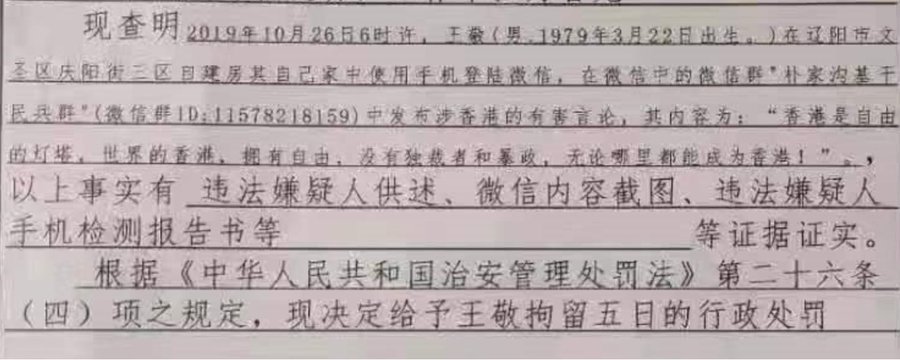 现查明2019年10月26日6时许，王敬(男.1979年3月22日出生。)在辽阳市文
圣区庆阳街三区自建房其自己家中使用手机登陆微信，在微信中的微信群"朴家沟基干
民兵群"(微信群ID:11578218159)中发布涉香港的有害言论，其内容为：“香港是自由
的灯塔，世界的香港，拥有自由，没有独裁者和暴政，无论哪里都能成为香港！”。，
以上事实有 违法嫌疑人供述、微信内容截图、违法嫌疑人
手机检测报告书等 等证据证实。
根据《中华人民共和国治安管理处罚法》第二十六条
（四）项之规定，现决定给予王敬拘留五日的行政处罚